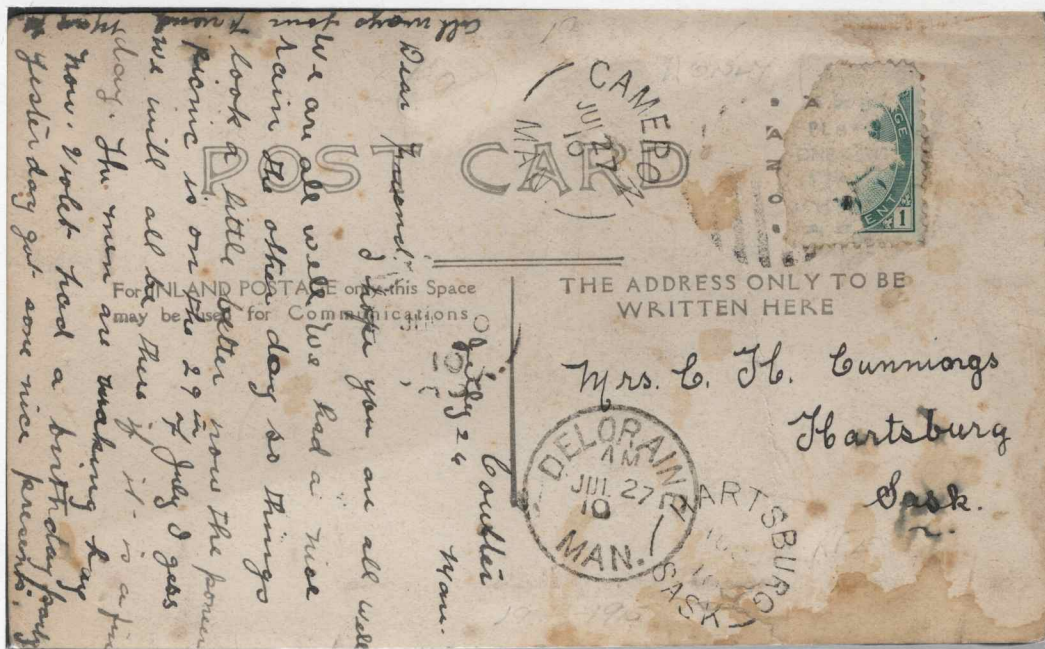 POST CARD
For INLAND POSTAGE only this Space
may be used for Communications
THE ADDRESS ONLY TO BE
WRITTEN HERE
CAMERO
JUL 27
10
MAN
CANA
AGE
ENT
1
Mrs. C. H. Cunniongs
Hartsburg
Sask.
DELORAINE
AM
JUL 27
10
MAN.
ARTSBURG
SASK
Coulter
Man.
July 24
Dear Freend
I hope you are all well
We are all well We had a nice
rain the other day so things
look a little better now the poneer
picnic is on the 29 in of July I gess
we will all be there if it is a fin
day. The men are making hay
now. Volet had a birthday party
yesterday got some nice presents.
all ways your Friend